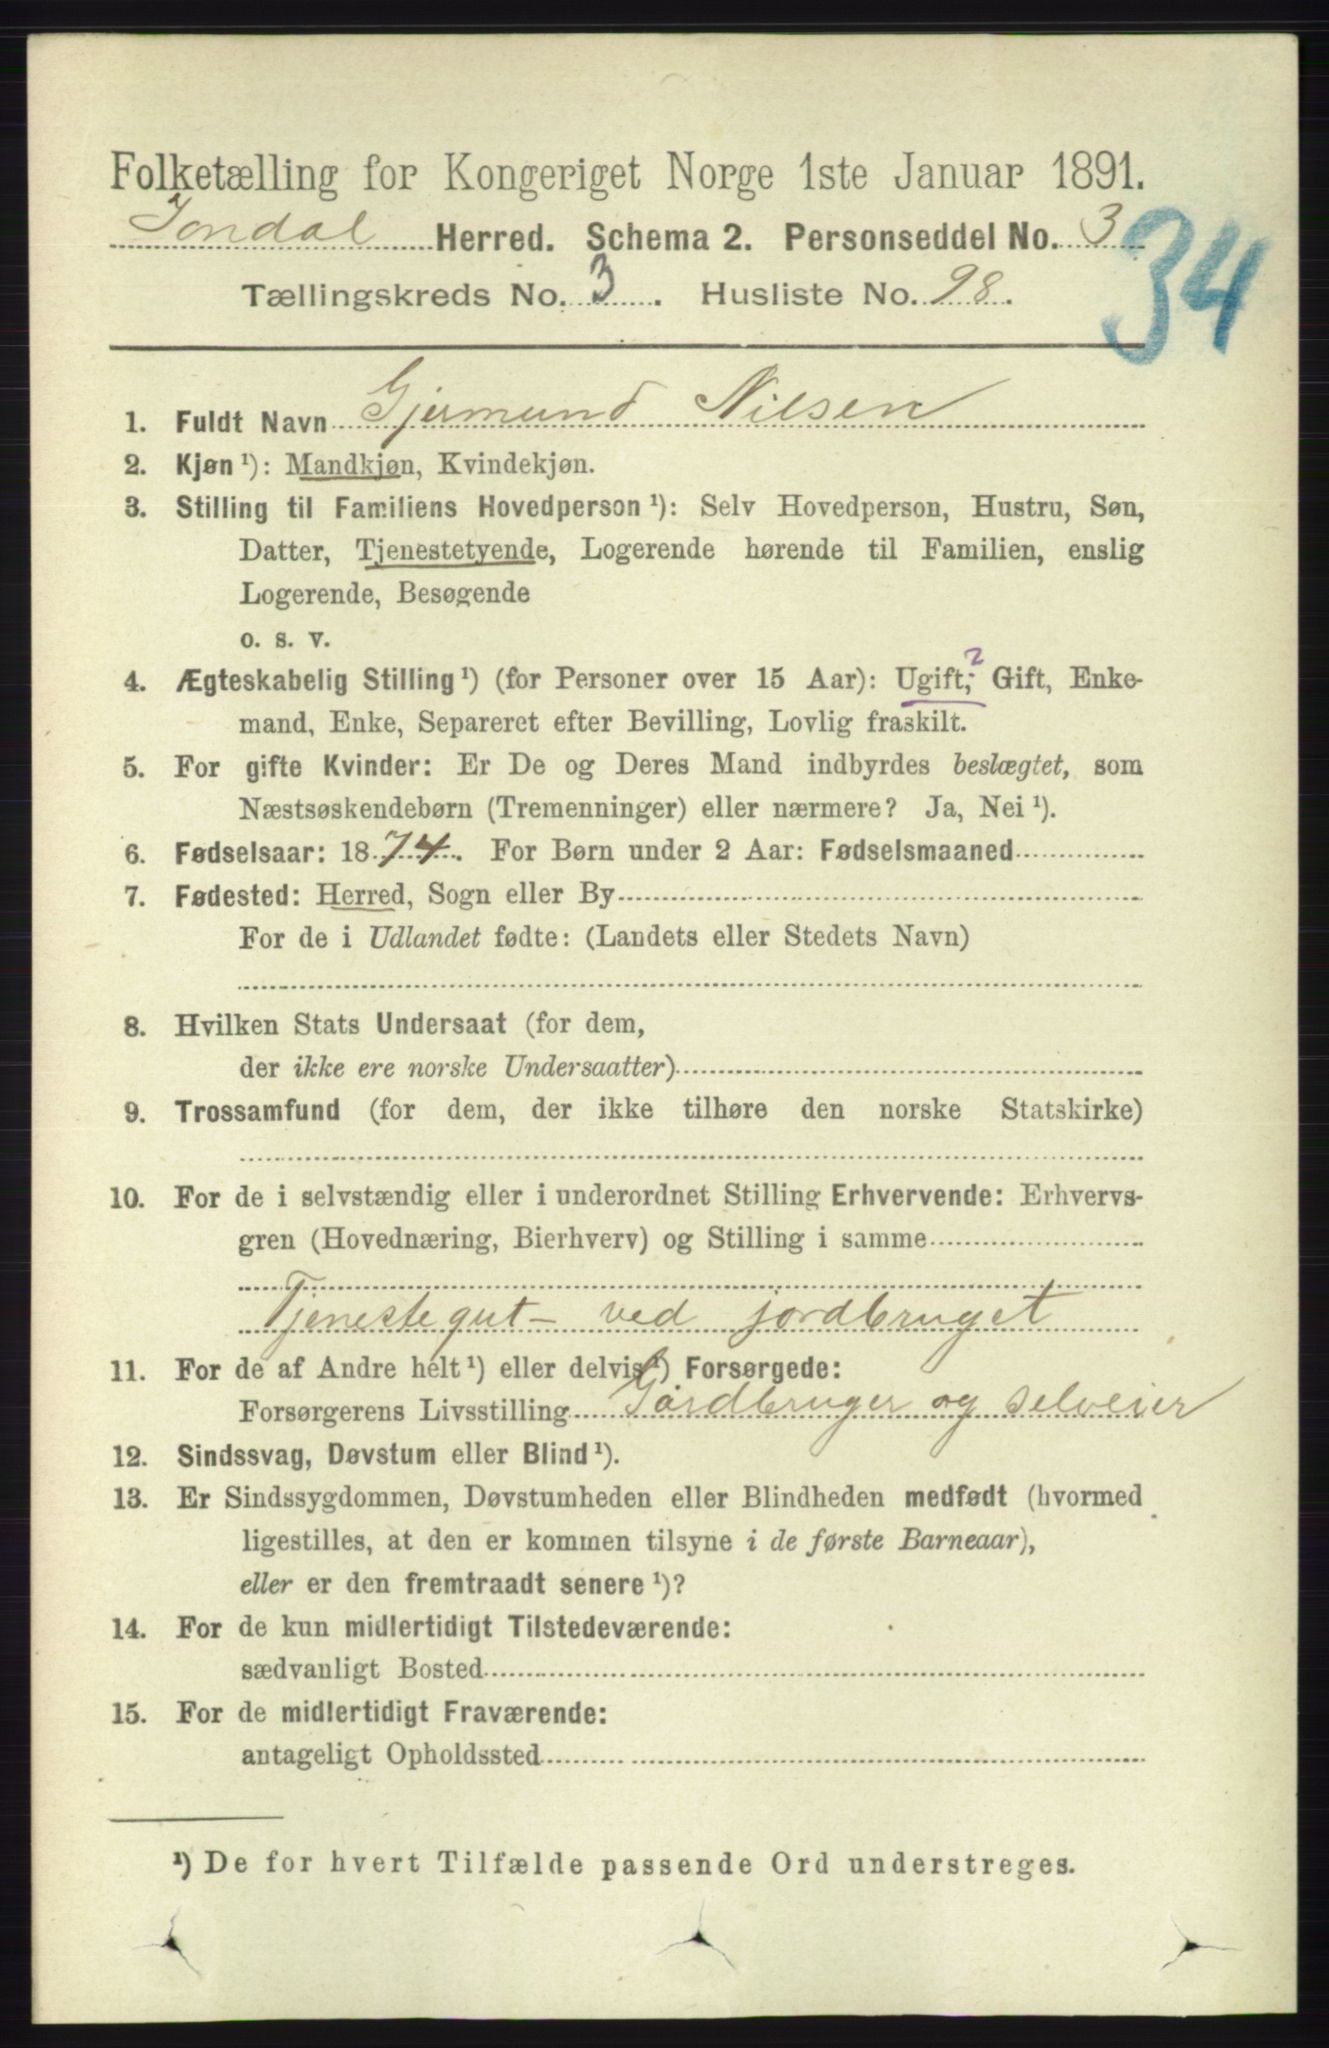 Folketælling for Kongeriget Norge 1ste Januar 1891.
Jondal Herred. Schema 2. Personseddel No. 3
34
Tællingskreds No. 3. Husliste No. 98.
1. Fuldt Navn Gjermund Nilsen
2. Kjøn ¹): Mandkjøn, Kvindekjøn.
3. Stilling til Familiens Hovedperson ¹): Selv Hovedperson, Hustru, Søn,
Datter, Tjenestetyende, Logerende hørende til Familien, enslig
Logerende, Besøgende
o. s. v.
2
4. Ægteskabelig Stilling ¹) (for Personer over 15 Aar): Ugift, Gift, Enke-
mand, Enke, Separeret efter Bevilling, Lovlig fraskilt.
5. For gifte Kvinder: Er De og Deres Mand indbyrdes beslægtet, som
Næstsøskendebørn (Tremenninger) eller nærmere? Ja, Nei ¹).
6. Fødselsaar: 1874. For Børn under 2 Aar: Fødselsmaaned
7. Fødested: Herred, Sogn eller By
For de i Udlandet fødte: (Landets eller Stedets Navn)
8. Hvilken Stats Undersaat (for dem,
der ikke ere norske Undersaatter)
9. Trossamfund (for dem, der ikke tilhøre den norske Statskirke)
10. For de i selvstændig eller i underordnet Stilling Erhvervende: Erhvervs-
gren (Hovednæring, Bierhverv) og Stilling i samme
Tjenestegut - ved jordbruget
11. For de af Andre helt ¹) eller delvis ¹) Forsørgede:
Forsørgerens Livsstilling Gårdbruger og selveier
12. Sindssvag, Døvstum eller Blind ¹).
13. Er Sindssygdommen, Døvstumheden eller Blindheden medfødt (hvormed
ligestilles, at den er kommen tilsyne i de første Barneaar),
eller er den fremtraadt senere ¹)?
14. For de kun midlertidigt Tilstedeværende:
sædvanligt Bosted
15. For de midlertidigt Fraværende:
antageligt Opholdssted
¹) De for hvert Tilfælde passende Ord understreges.